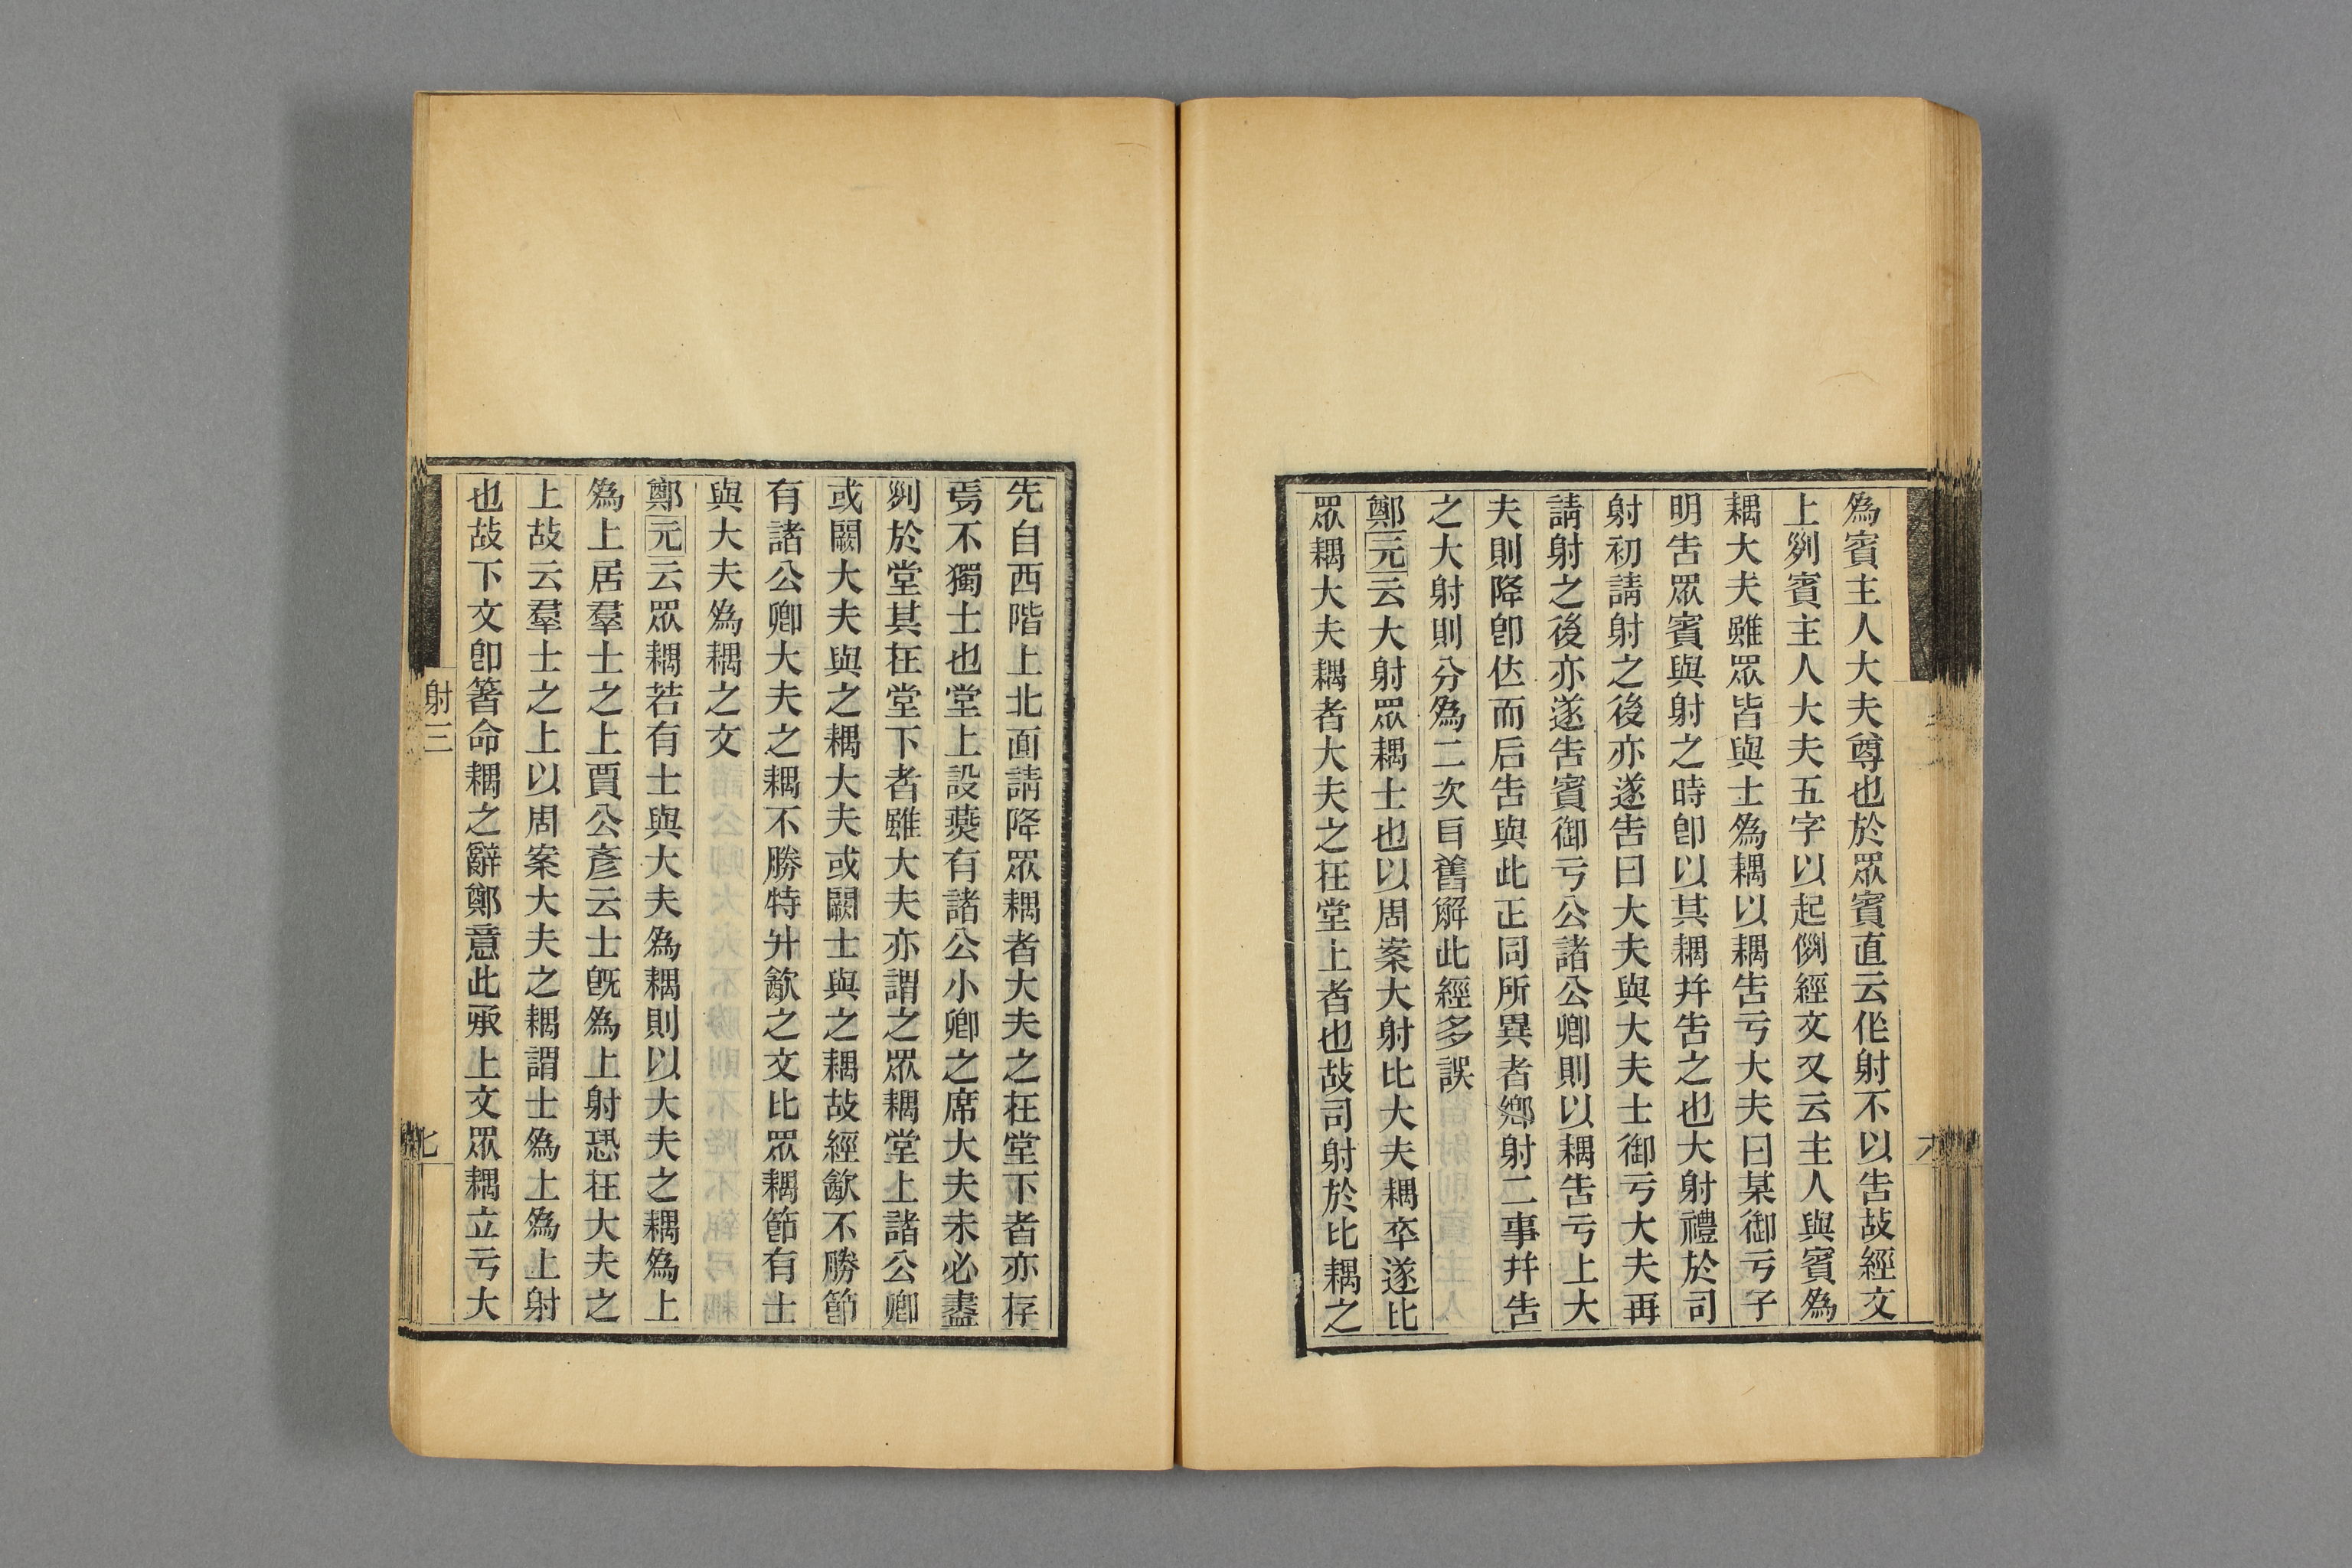 爲賓主人大夫尊也於眾賓直云作射不以告故經文
上列賓主人大夫五字以起例經文又云主人與賓爲
耦大夫雖眾皆與士爲耦以耦告亏大夫曰某御亏子
明告眾賓與射之時卽以其耦幷告之也大射禮於司
射初請射之後亦遂告曰大夫與大夫士御亏大夫再
請射之後亦遂告賓御亏公諸公卿則以耦告亏上大
夫則降卽位而后告與此正同所異者鄉射二事幷告
之大射則分爲二次自舊解此經多誤
鄭元云大射眾耦士也以周案大射比大夫耦卒遂比
眾耦大夫耦者大夫之在堂上者也故司射於比耦之
先自西階上北面請降眾耦者大夫之在堂下者亦存
焉不獨士也堂上設㷼有諸公小卿之席大夫未必盡
列於堂其在堂下者雖大夫亦謂之眾耦堂上諸公卿
或闕大夫與之耦大夫或闕士與之耦故經㱃不勝節
有諸公卿大夫之耦不勝特升㱃之文比眾耦節有士
與大夫爲耦之文
鄭元云眾耦若有士與大夫爲耦則以大夫之耦爲上
爲上居羣士之上賈公彥云士旣爲上射恐在大夫之
上故云羣士之上以周案大夫之耦謂士爲上爲上射
也故下文卽箸命耦之辭鄭意此承上文眾耦立亏大
射三
七
六